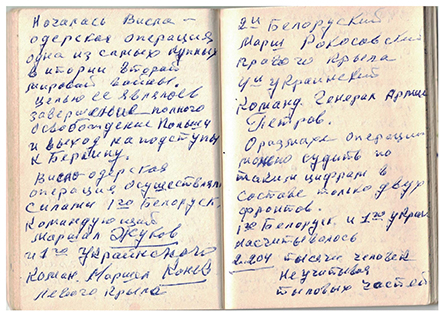 Началась Висла –
одерская операция
одна из самых крупных
в итории Второй
мировой войны.
Целью ее являлось
завершение полного
освобождения Польшы
и выход на подступы
к Берлину.
Висло-одерская
операция осуществлял
силами 1го Белорусск.
Командующий
Маршал Жуков
и 1го Украинского
Коман. Маршал Конев
левого крыла
2й Белоруский
Марш Рокосовский
правого крыла
4й украинский
Команд. Генерал Армии
Петров.
О размахе операции
можно судить по
таким цифрам в
составе только двух
фронтов.
1го Белорусск и 1го украин
насчитывалось
2.204 тысячи человек
не учитывая
тыловых частей